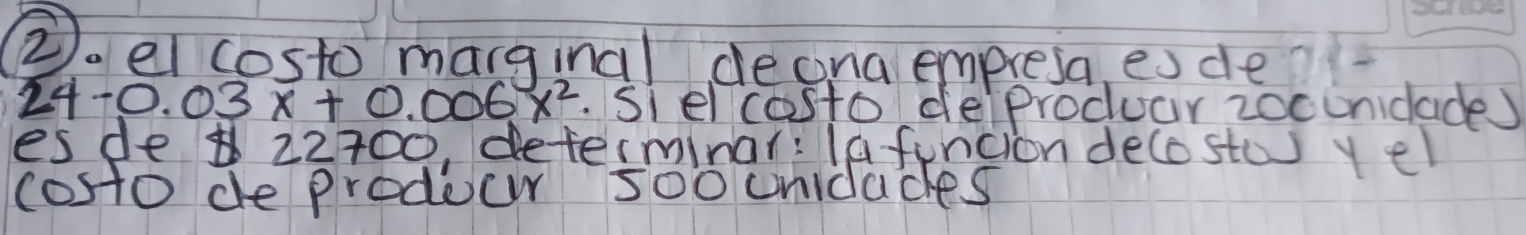 scribe
②. el costo marginal de una empresa es de
24-0.03x + 0.006x². si el costo de producir 200 unidades
es de $ 22700, determinar: la función de costos y el
costo de producir 500 unidades